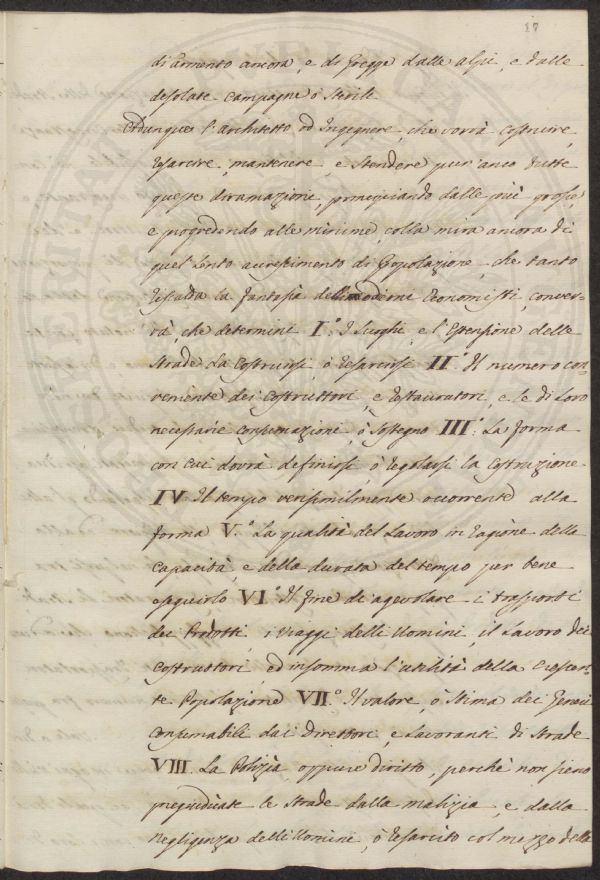 27
di armento ancora, e di Gregge dalle alpi, e dalle
desolate campagne ò Sterili
Adunque l'architetto od Ingegnere, che vorrà costruire,
resarcire, mantenere, e Stendere pur'anco tutte
queste diramazione, principiando dalle più grosse,
e progredendo alle minime, colla mira ancora di
quel lento accrescimento di Popolazione, che tanto
riscalda la fantasia delli moderni Economisti, conver-
rà, che determini I.° I Luoghi, e l'Estensione delle
Strade da Costruirsi, ò resarcirsi II.° Il numero con-
veniente dei Costruttori, e restauratori, e le di Loro
necessarie consumazioni, ò Sostegno III.° La forma
con cui dovrà definirsi, ò regolarsi la Costruzione
IV. Il tempo verisimilmente occorrente alla
forma V.° La qualità del Lavoro in ragione della
capacità, e della durata del tempo per bene
eseguirlo VI.° Il fine di agevolare i trasporti
dei Prodotti, i viaggi delli Uomini, il Lavoro dei
Costruttori, ed insomma l'utilità della Crescen-
te Popolazione VII.° Il valore, ò Stima dei Generi
Consumabili dai direttori, e Lavoranti di Strade
VIII. La Polizia, oppure diritto, perchè non sieno
pregiudicate le Strade dalla malizia, e dalla
Negligenza delli Uomini, ò resarcito col mezzo della